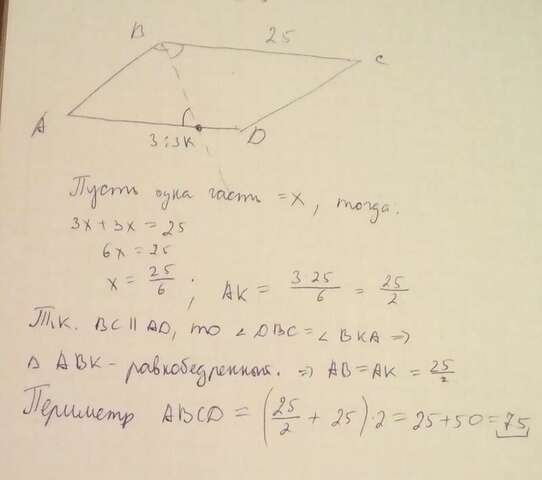 B 25 C
A 3:3K D
Пусть одна часть = x, тогда:
3x + 3x = 25
6x = 25
x = 25/6 ; AK = 3·25/6 = 25/2
Т.к. BC || AD, то ∠DBC = ∠BKA =>
Δ ABK - равнобедренный. => AB = AK = 25/2
Периметр ABCD = (25/2 + 25)·2 = 25+50 = 75